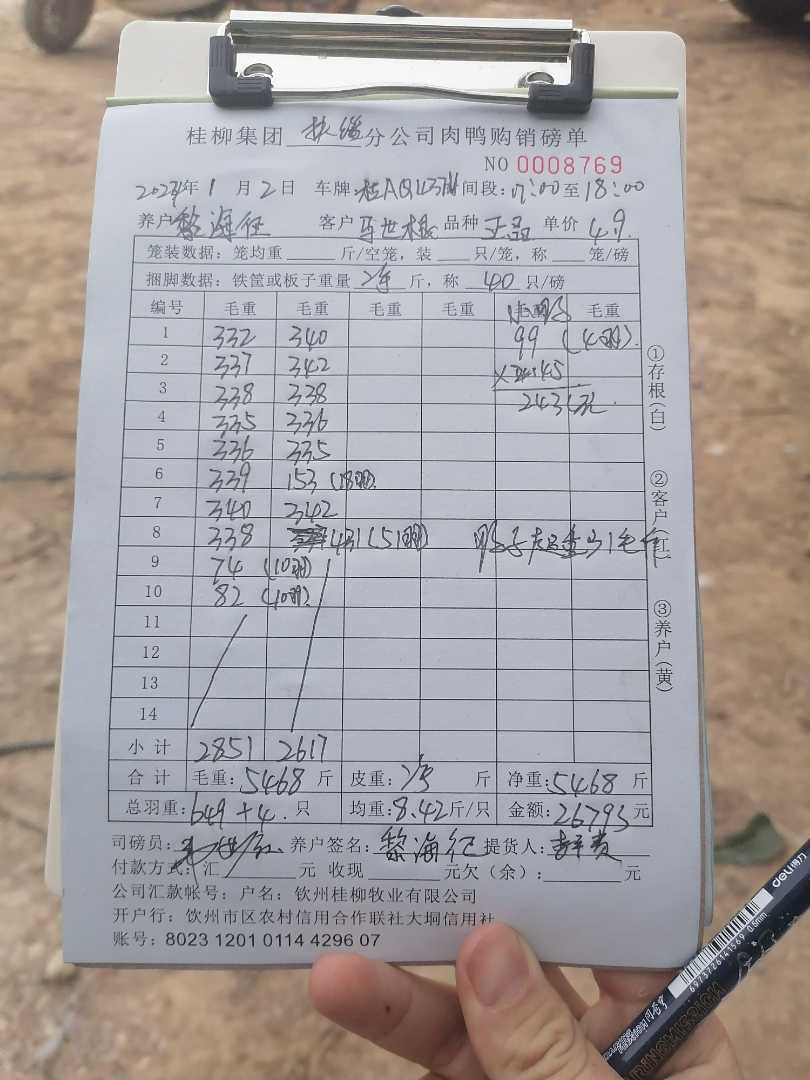 桂柳集团 扶绥 分公司肉鸭购销磅单
NO 0008769
2024年1月2日 车牌: 间段: :00至18:00
养户 黎海征 客户 品种 单价 4.9
笼装数据：笼均重 斤/空笼，装 只/笼，称 笼/磅
捆脚数据：铁筐或板子重量 斤，称 40 只/磅
编号 毛重 毛重 毛重 毛重 毛重
1 332 340 99 (4羽).
2 337 342 45
3 338 338 243
4 335 336
5 336 335
6 339 153 (18羽).
7 340 342
8 338 431 (51羽)
9 74 (10羽)
10 82 (10羽).
11
12
13
14
小计 2851 2617
合计 毛重：5468 斤 皮重： 斤 净重：5468 斤
总羽重：649+4. 只 均重：8.42斤/只 金额：26793元
司磅员： 养户签名：黎海征 提货人：
付款方式：汇 元 收现 元欠（余）： 元
公司汇款帐号：户名：钦州桂柳牧业有限公司
开户行：钦州市区农村信用合作联社大垌信用社
账号：8023 1201 0114 4296 07
①存根(白)
②客户(红)
③养户(黄)
deli得力
0.5mm
6973726141569